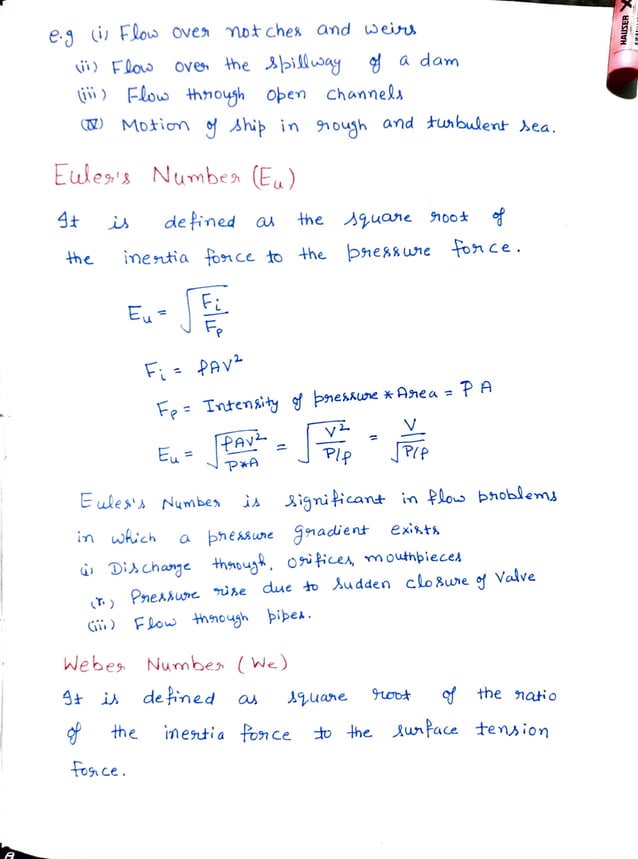 e.g (i) Flow over notches and weirs
(ii) Flow over the spillway of a dam
(iii) Flow through open channels
(IV) Motion of ship in rough and turbulent sea.
HAUSER
Euler's Number (Eu)
It is defined as the square root of
the inertia force to the pressure force.
Eu = √(Fi/Fp)
Fi = ρAV²
Fp = Intensity of pressure * Area = P A
Eu = √(ρAV²/P*A) = √(V²/P/ρ) = V/√P/ρ
Euler's Number is significant in flow problems
in which a pressure gradient exists
(i) Discharge through, orifices, mouthpieces
(ii) Pressure rise due to sudden closure of Valve
(iii) Flow through pipes.
Weber Number (We)
It is defined as square root of the ratio
of the inertia force to the surface tension
force.